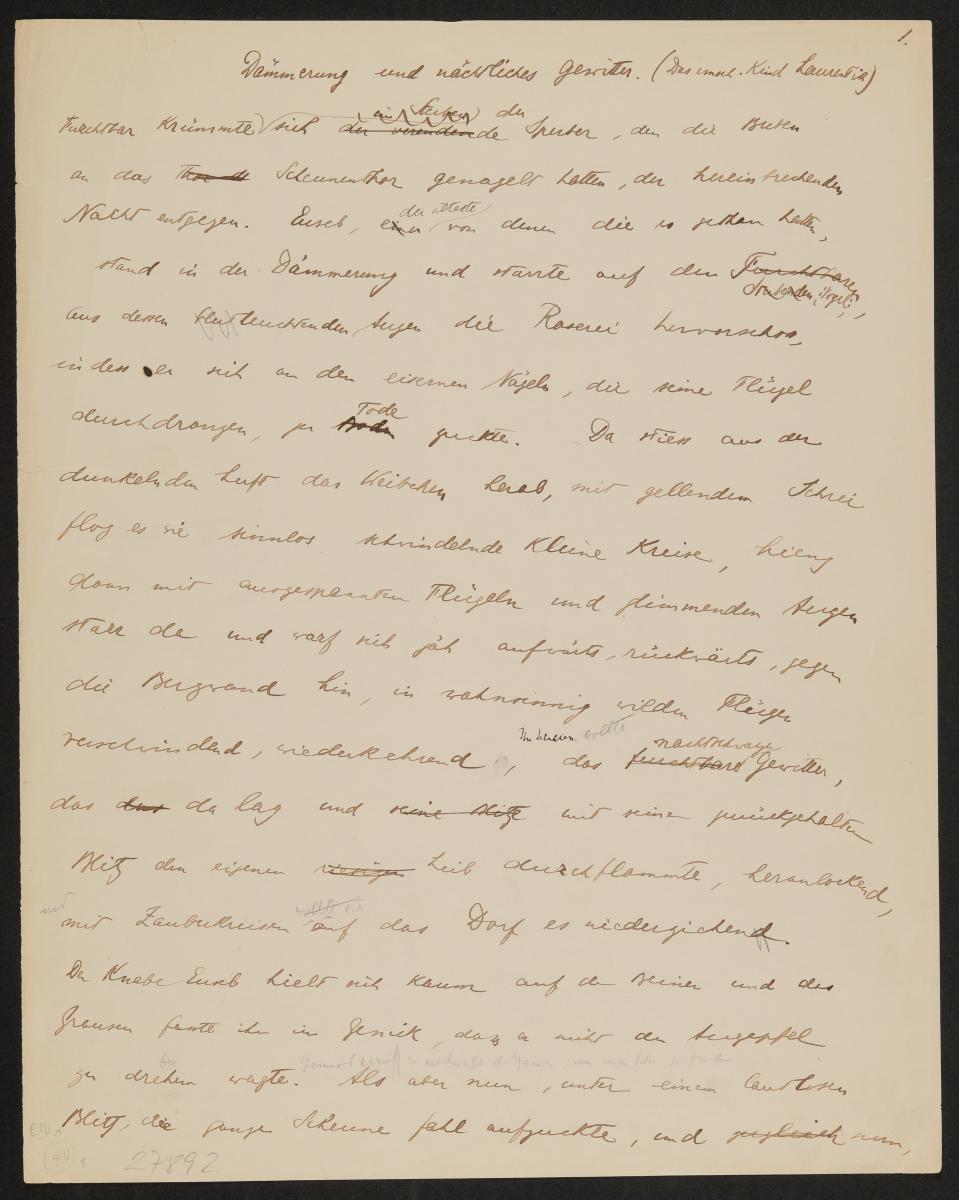 1.
Dämmerung und nächtliches Gewitter. (Das Kind Laurentia)
ein Sterben der
Furchtbar krümmte sich der verendende Sperber, den die Buben
an das Scheunenthor genagelt hatten, der hereinbrechenden
der älteste
Nacht entgegen. Euseb, einer von denen die es gethan hatten,
stand in der Dämmerung und starrte auf den Furchtbaren
Vogel,
aus dessen leuchtenden Augen die Raserei hervorschoss,
indess er sich an den eisernen Nägeln, die seine Flügel
Tode
durchdrangen, zu zuckte. Da stiess aus der
dunkelnden Luft das Weibchen herab, mit gellendem Schrei
flog es wie sinnlos schwindelnde kleine Kreise, hieng
dann mit ausgespannten Flügeln und glimmenden Augen
starr da und warf sich jäh aufwärts, rückwärts, gegen
die Bergwand hin, in wahnsinnig wilden Flügen
wollte nachtschwarze
verschwindend, wiederkehrend, das furchtbare Gewitter,
das das da lag und seine Blitze mit seinen zurückgehaltenen
Blitz den eigenen riesigen Leib durchflammte, heranlockend,
mit
wollte sie
mit Zauberkreisen auf das Dorf es niederziehend.
Der Knabe Euseb hielt sich kaum auf den Beinen und das
Grausen fasste ihn im Genick, dass er nicht den Augapfel
zu drehen wagte. Als aber nun, unter einem lautlosen
Blitz, die ganze Scheune fahl aufzuckte, und zugleich nun,
44
27892